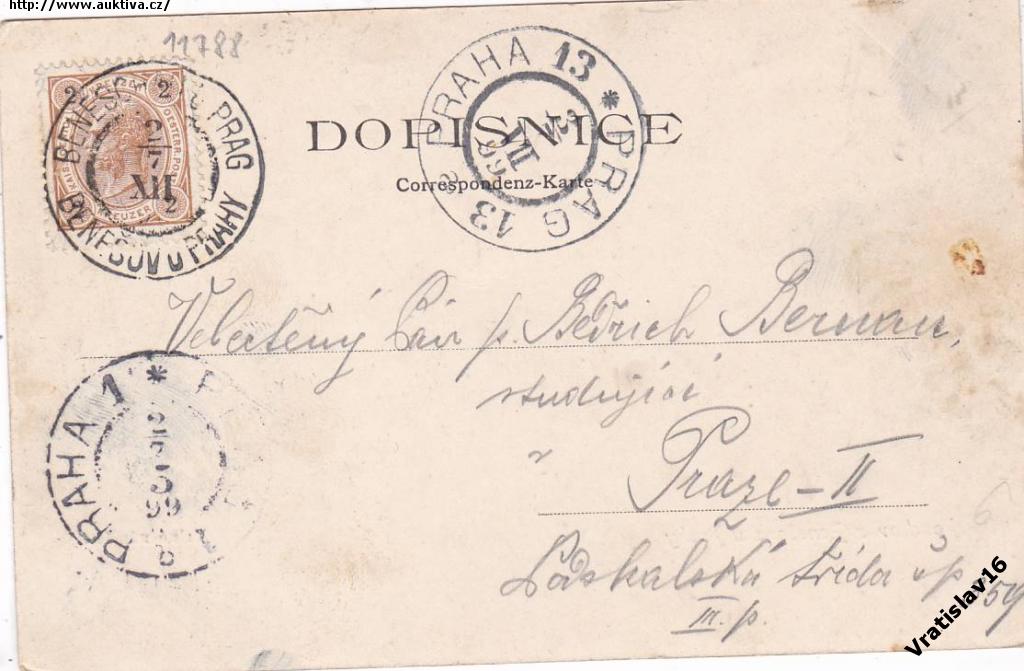 http://www.auktiva.cz/
11788
2 2
KREUZER
BENESCHAU B. PRAG
BENEŠOV U PRAHY
XII
PRAHA 13 * PRAG 13 a
XII
99
DOPISNICE
Correspondenz-Karte
Velectěný Pán p. Bedřich Bernau,
studující
v
Praze-II
PRAHA 1 *
99
třída čp
III. p.
6
Vratislav16